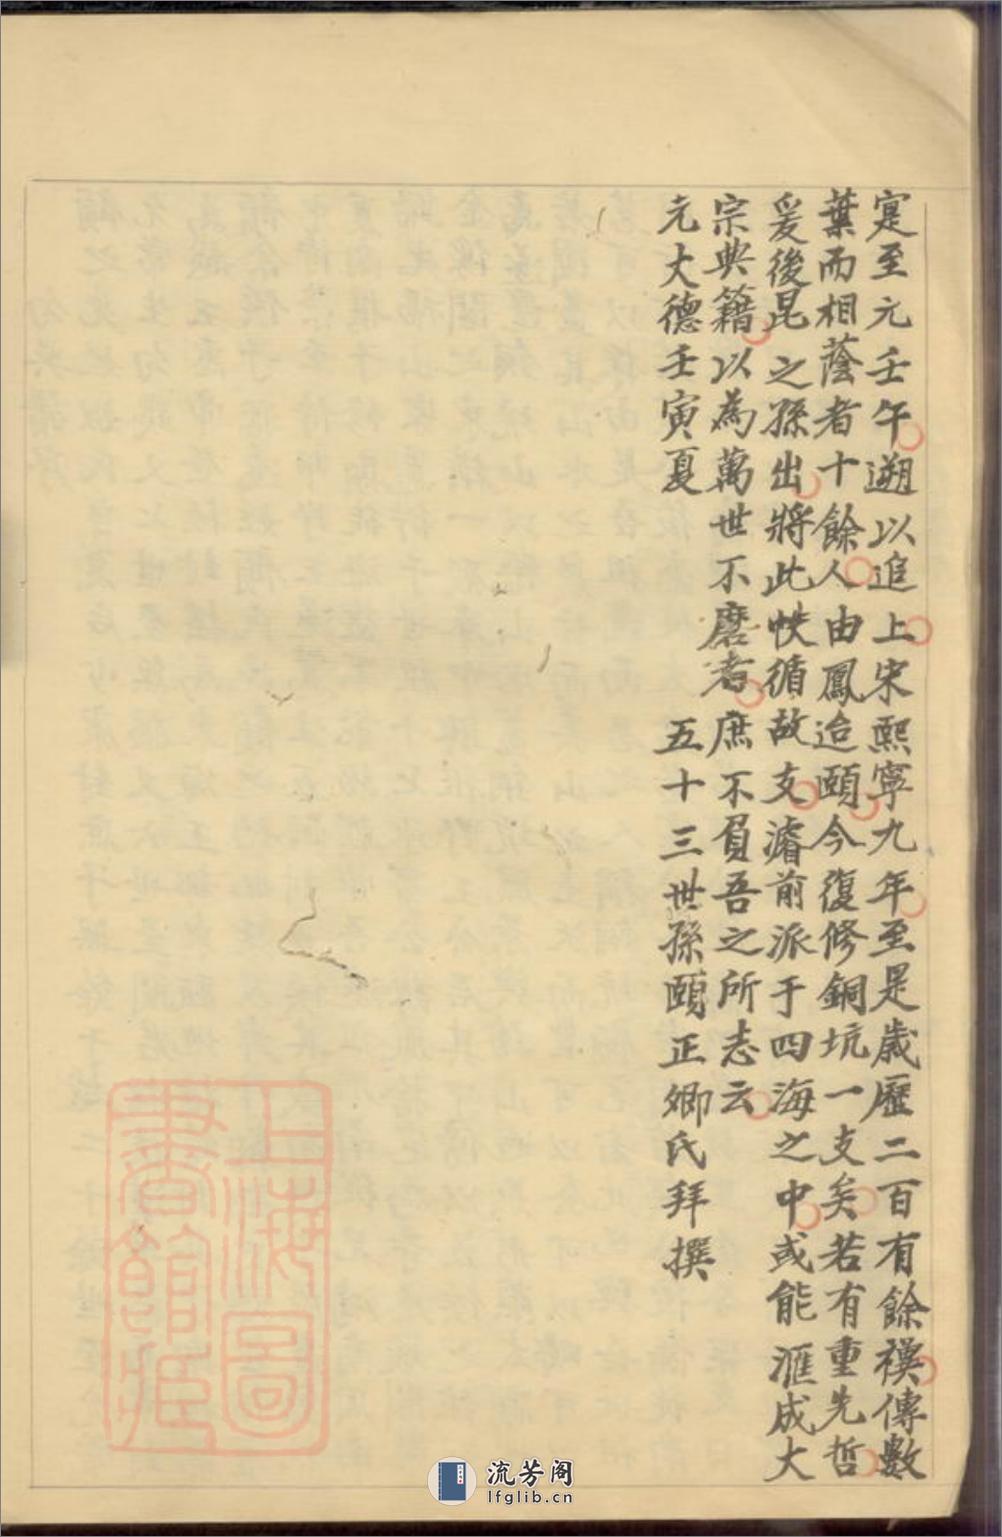 寔至元壬午遡以追上宋熙寧九年至是歲歷二百有餘禩傳數
葉而相蔭者十餘人由鳳迨頤今復修銅坑一支矣若有重先哲
爰後昆之孫出將此帙循故支濬前派于四海之中或能滙成大
宗典籍以為萬世不磨者庶不負吾之所志云
元大德壬寅夏 五十三世孫頤正卿氏拜撰
上海圖書館藏
流芳阁
lfglib.cn